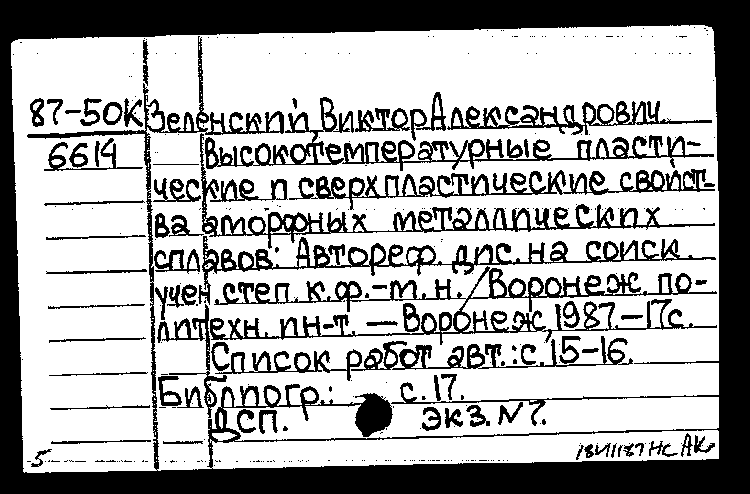 87-50К Зеленский, Виктор Александрович
6614 Высокотемпературные пласти-
ческие и сверхпластические свойст-
ва аморфных металлических
сплавов: Автореф. дис. на соиск.
учен. степ. к.ф.-м.н. / Воронеж. по-
литехн. ин-т. — Воронеж, 1987. — 17с.
Список работ авт.: с. 15-16.
Библиогр.: с. 17.
ДСП. экз. N7.
5